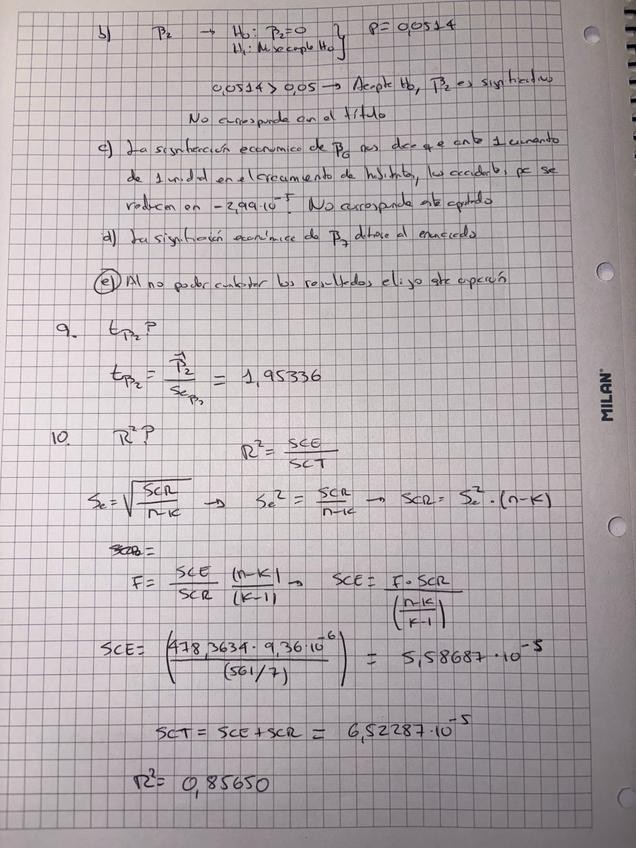 b) β₂ → H₀: β₂=0 } p = 0,0514
H₁: No se acepta H₀
0,0514 > 0,05 → Acepto H₀, β₂ es significativo
No corresponde con el título
c) La significación económica de β₆ nos dice que ante 1 aumento
de 1 unidad en el crecimiento de habitantes, los accidentes pc se
reducen en -2,99·10⁻⁵. No corresponde este apartado
d) La significación económica de β₇ difiere al enunciado
e) Al no poder contrastar los resultados elijo esta opción
9. t_β₂?
t_β₂ = β̂₂ / Se_β₂ = 1,95336
10. R²?
R² = SCE / SCT
Se = √(SCR / n-K) → Se² = SCR / n-K → SCR = Se² · (n-K)
F = SCE / SCR (n-K) / (K-1) → SCE = F · SCR / (n-K / K-1)
SCE = (478,3634 · 9,36·10⁻⁶ / (561/7)) = 5,58687·10⁻⁵
SCT = SCE + SCR = 6,52287·10⁻⁵
R² = 0,85650
MILAN